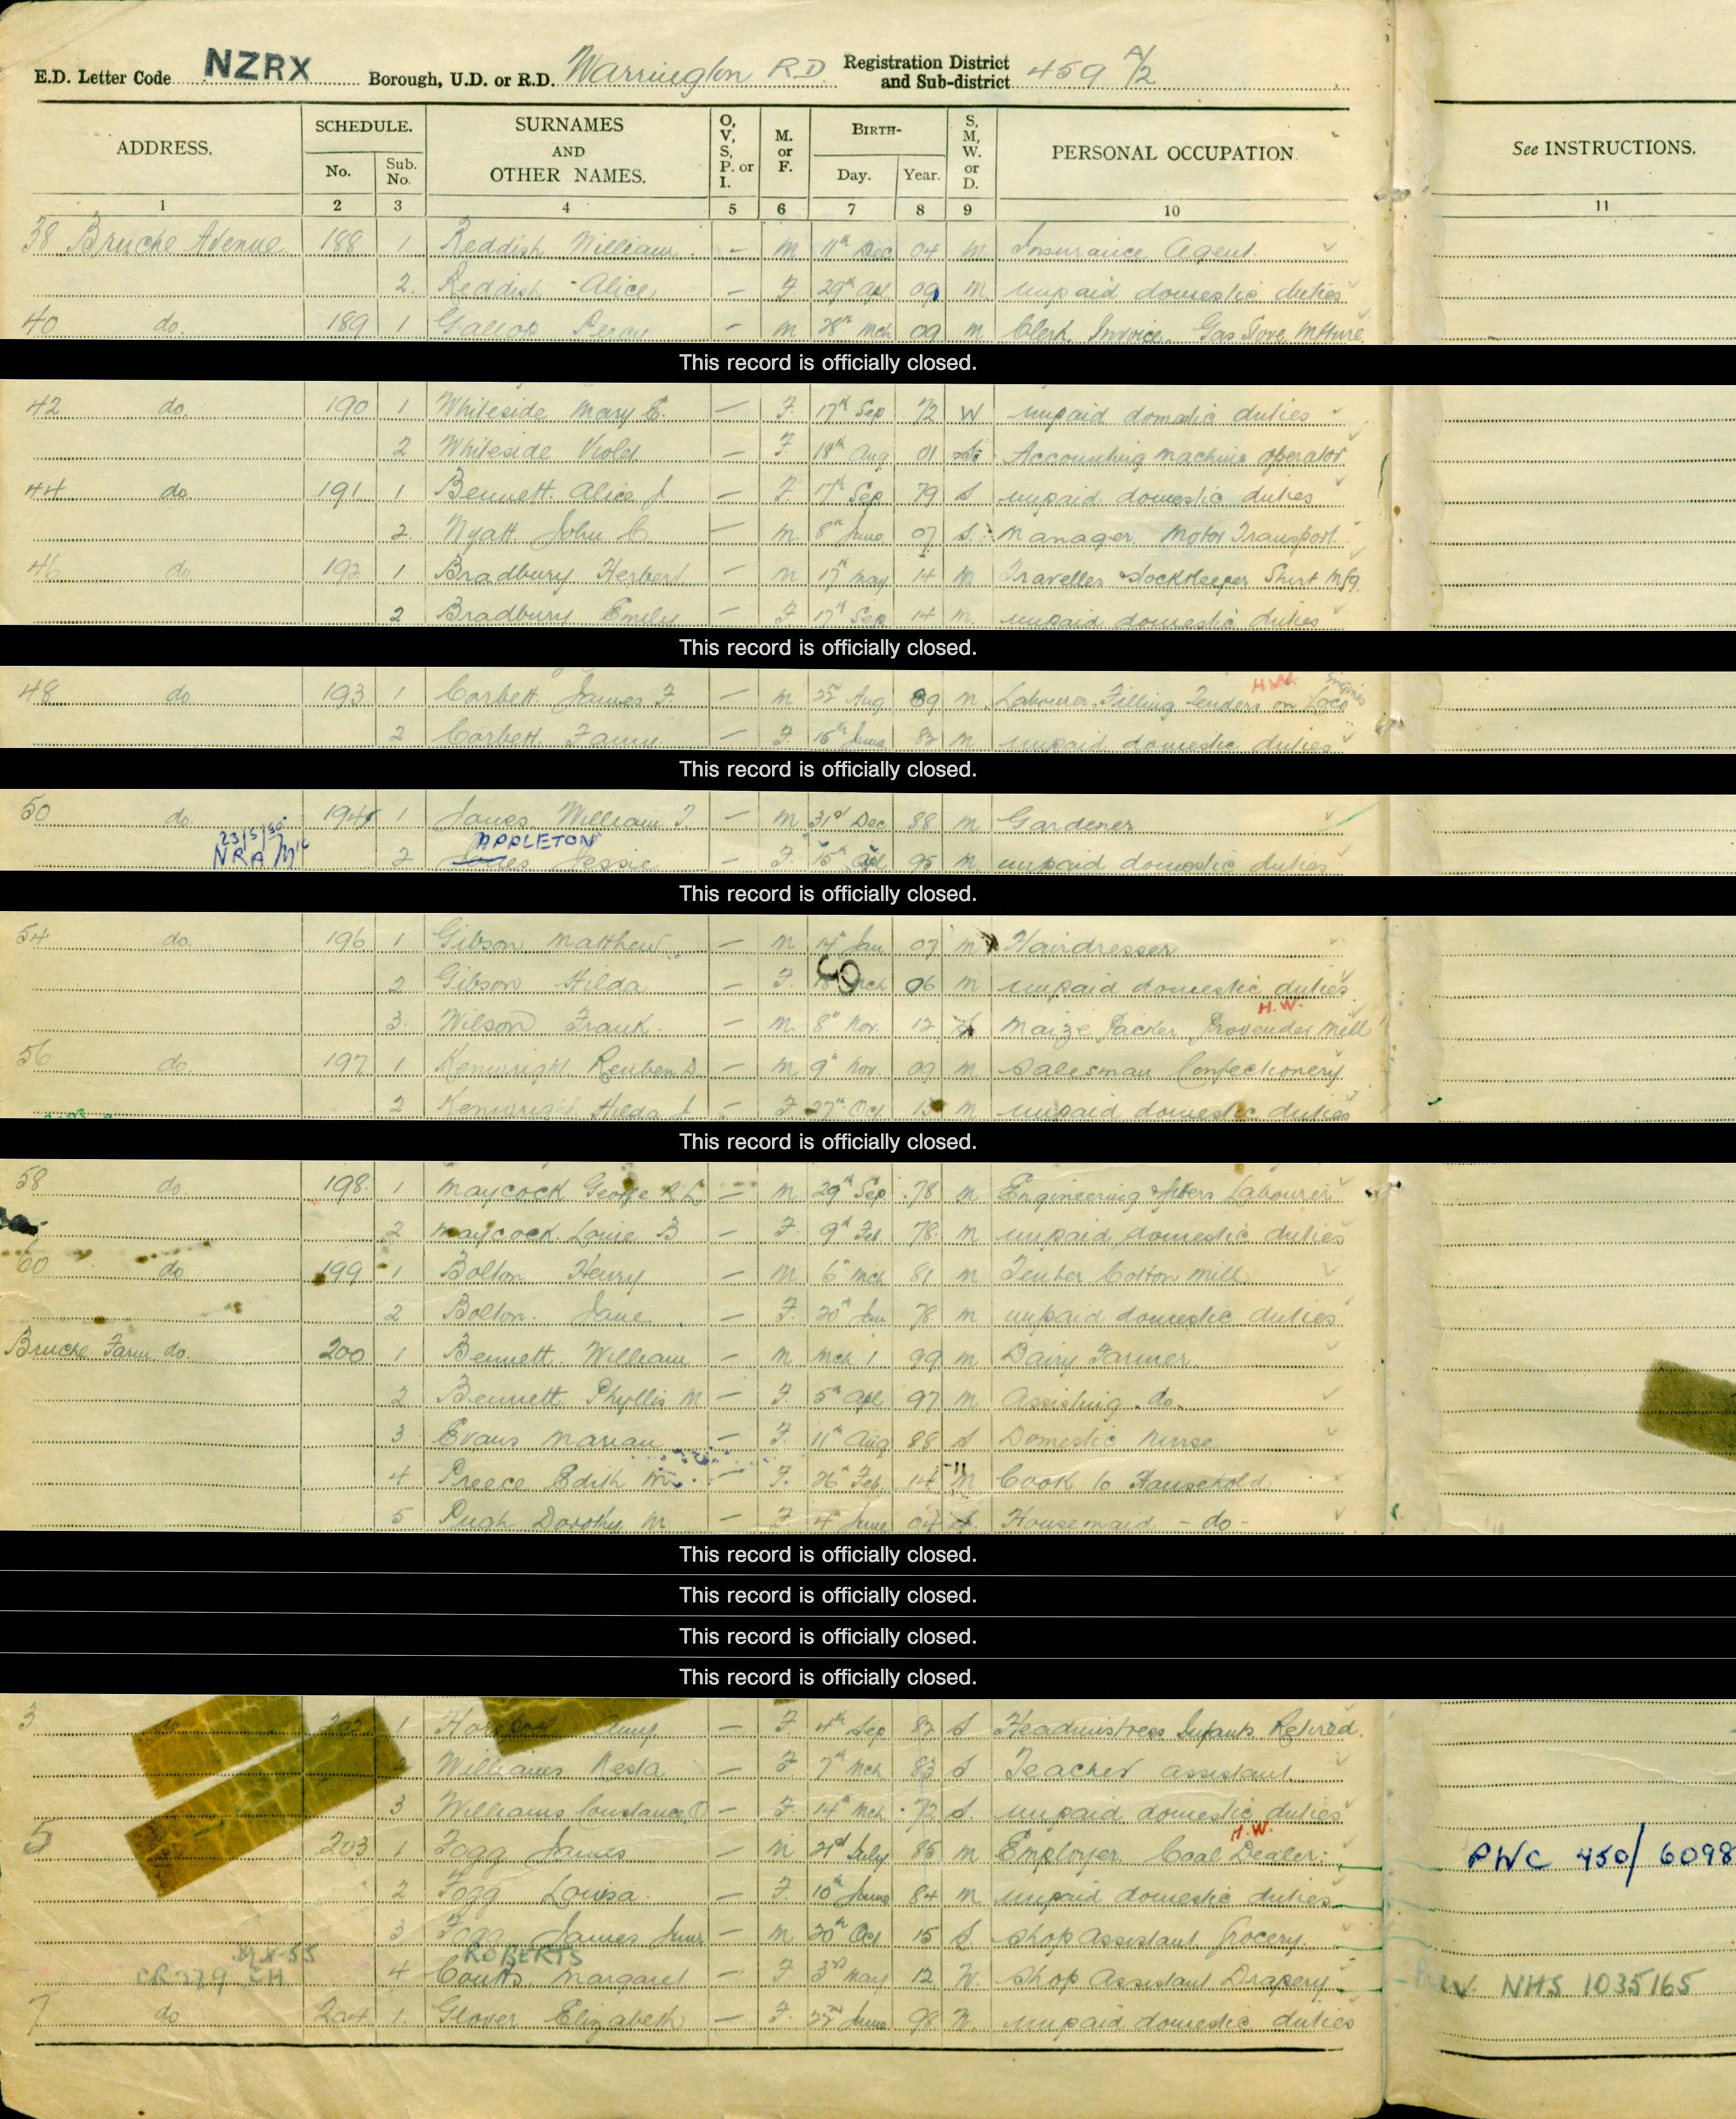 E.D. Letter Code NZRX Borough, U.D. or R.D. Warrington R.D. Registration District and Sub-district 459 A/2
ADDRESS. SCHEDULE. No. Sub. No. SURNAMES AND OTHER NAMES. O, V, S, P. or I. M. or F. BIRTH- Day. Year. S, M, W. or D. PERSONAL OCCUPATION. See INSTRUCTIONS.
1 2 3 4 5 6 7 8 9 10 11
38 Bruche Avenue 188 1 Reddish William. – M 11th Dec 04 M Insurance Agent.
2. Reddish Alice – F. 29th Apl 09 M unpaid domestic duties
40 do. 189 1 Gallop Percy – M 28th Mch 09 M Clerk Invoice Gas Stove Mfture
This record is officially closed.
42 do. 190 1 Whiteside Mary E. – F. 17th Sep 72 W unpaid domestic duties
2 Whiteside Violet – F 18th Aug 01 S Accounting machine operator
44 do. 191 1 Bennett Alice J – F 17th Sep 79 S unpaid domestic duties
2. Wyatt John C – M. 8th June 07 S. Manager Motor Transport.
46 do. 192 1 Bradbury Herbert – M 17th May 14 M Traveller & Stockkeeper Shirt Mfg.
2 Bradbury Emily – F 17th Sep 14 M. unpaid domestic duties
This record is officially closed.
H.W. Engines
48 do 193 1 Corbett James F. – M 22nd Aug 89 M. Labourer Filling Tenders on Loco
2 Corbett Fanny – F. 15th June 82 M unpaid domestic duties
This record is officially closed.
50 do. 194 1 Jones William J. – M 31st Dec 88 M Gardener
23/5/50 APPLETON
NRA 2 Jones Jessie – F. 15th Apl 95 M. unpaid domestic duties
This record is officially closed.
54 do. 196 1 Gibson Matthew – M 14th Jan 07 M Hairdresser
2 Gibson Hilda – F. Mch 06 M unpaid domestic duties
H.W.
3. Wilson Frank. – M. 8th Nov. 12 S Maize Packer Provender Mill
56 do. 197 1 Kenwright Reuben D – M 9th Nov. 09 M Salesman Confectionery
2 Kenwright Hilda J – F 27th Oct 13 M unpaid domestic duties
This record is officially closed.
58 do. 198. 1 Maycock George R L – M 29th Sep 78 M Engineering fitters Labourer
2 Maycock Louie B – F 9th Feb 78. M unpaid domestic duties
60 do 199 1 Bolton Henry – M 6th Mch 81 M Tenter Cotton Mill
2 Bolton. Jane – F. 20th Jan 78 M unpaid domestic duties
Bruche Farm do. 200 1 Bennett William – M Mch 1 99 M Dairy Farmer
2 Bennett Phyllis M – F. 5th Apl 97 M Assisting do.
3 Evans Marian – F. 11th Aug 88 S Domestic Nurse
4 Preece Edith M. – F. 26th Feb 14 M Cook to Household
5 Pugh Dorothy M – F. 4th June 04 S Housemaid - do -
This record is officially closed.
This record is officially closed.
This record is officially closed.
This record is officially closed.
3 202 1 Amy – F. 4th Sep 82 S Headmistress Infants Retired.
Williams Nesta – F. 7th Mch 83 S Teacher assistant
3 Williams Constance O – F. 14th Mch 72 S. unpaid domestic duties
H.W.
5 203 1 Fogg James – M 21st July 85 M Employer Coal Dealer. PWC 450/6098
2 Fogg Louisa. – F. 10th June 84 M unpaid domestic duties
3 Fogg James Junr – M 20th Oct 15 S. Shop Assistant Grocery.
55 ROBERTS
CR279 EH 4 Coutts Margaret – F 3rd May 12 W. Shop Assistant Drapery NHS 1035165
7 do 204 1. Glover Elizabeth – F. 22nd June 98 W. unpaid domestic duties